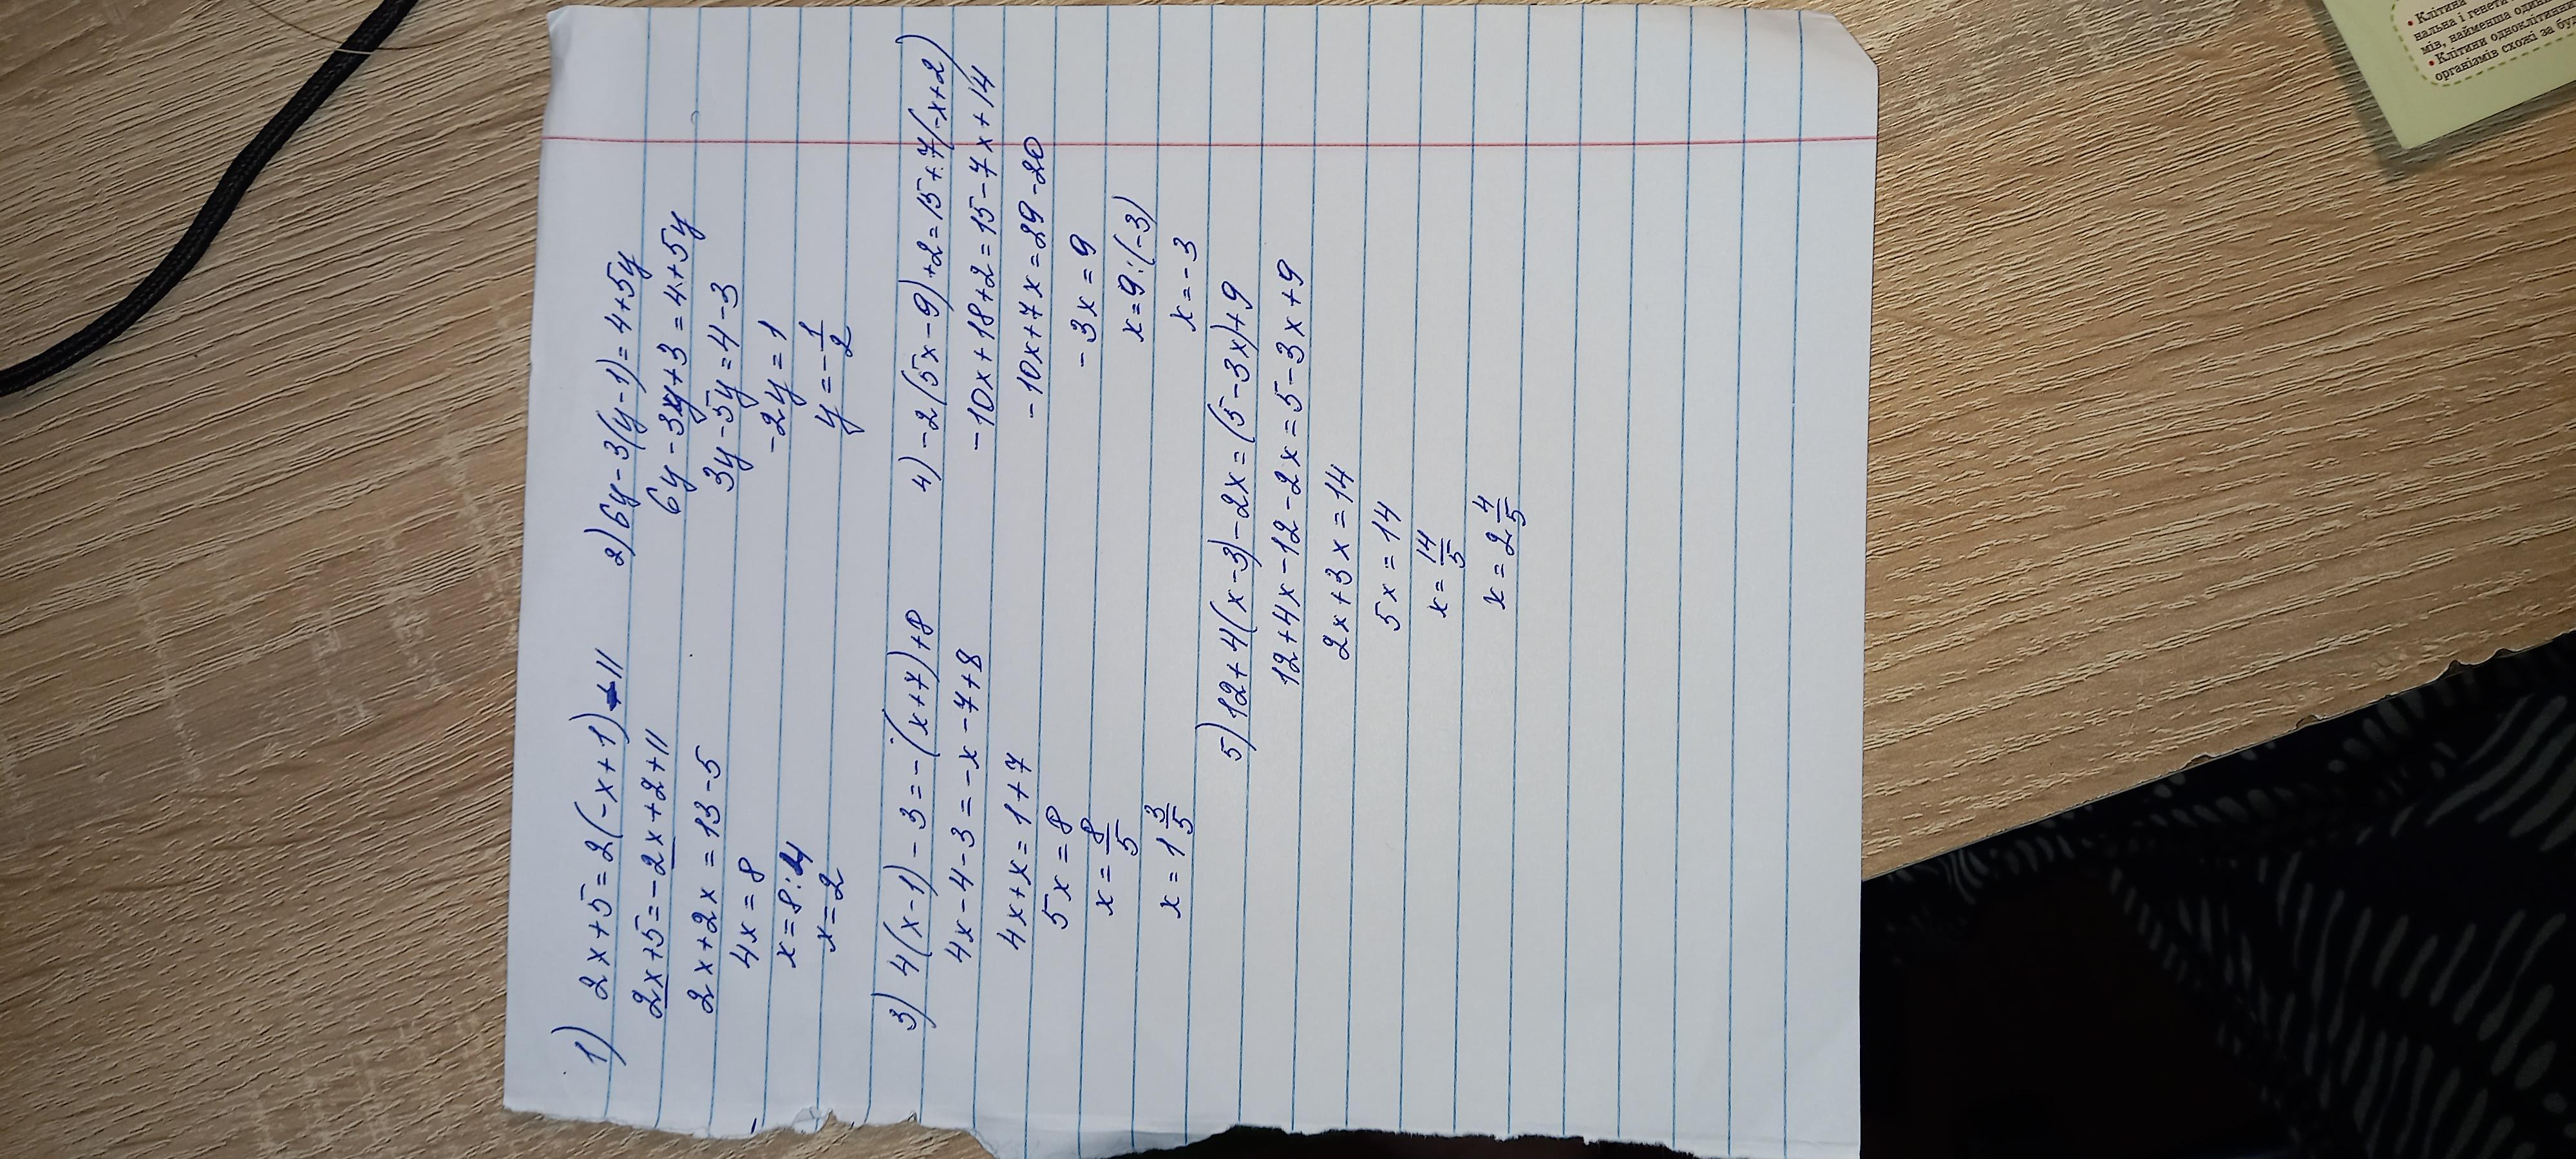 1) 2x+5=2(-x+1)+11
2x+5=-2x+2+11
2x+2x=13-5
4x=8
x=8:4
x=2
2) 6y-3(y-1)=4+5y
6y-3y+3=4+5y
3y-5y=4-3
-2y=1
y=-1/2
3) 4(x-1)-3=-(x+7)+8
4x-4-3=-x-7+8
4x+x=1+7
5x=8
x=8/5
x=1 3/5
4) -2(5x-9)+2=15+7(-x+2)
-10x+18+2=15-7x+14
-10x+7x=29-20
-3x=9
x=9:(-3)
x=-3
5) 12+4(x-3)-2x=(5-3x)+9
12+4x-12-2x=5-3x+9
2x+3x=14
5x=14
x=14/5
x=2 4/5
• Клітина
нальна і генети
мів, найменша один
• Клітини одноклітинни
організмів схожі за бу